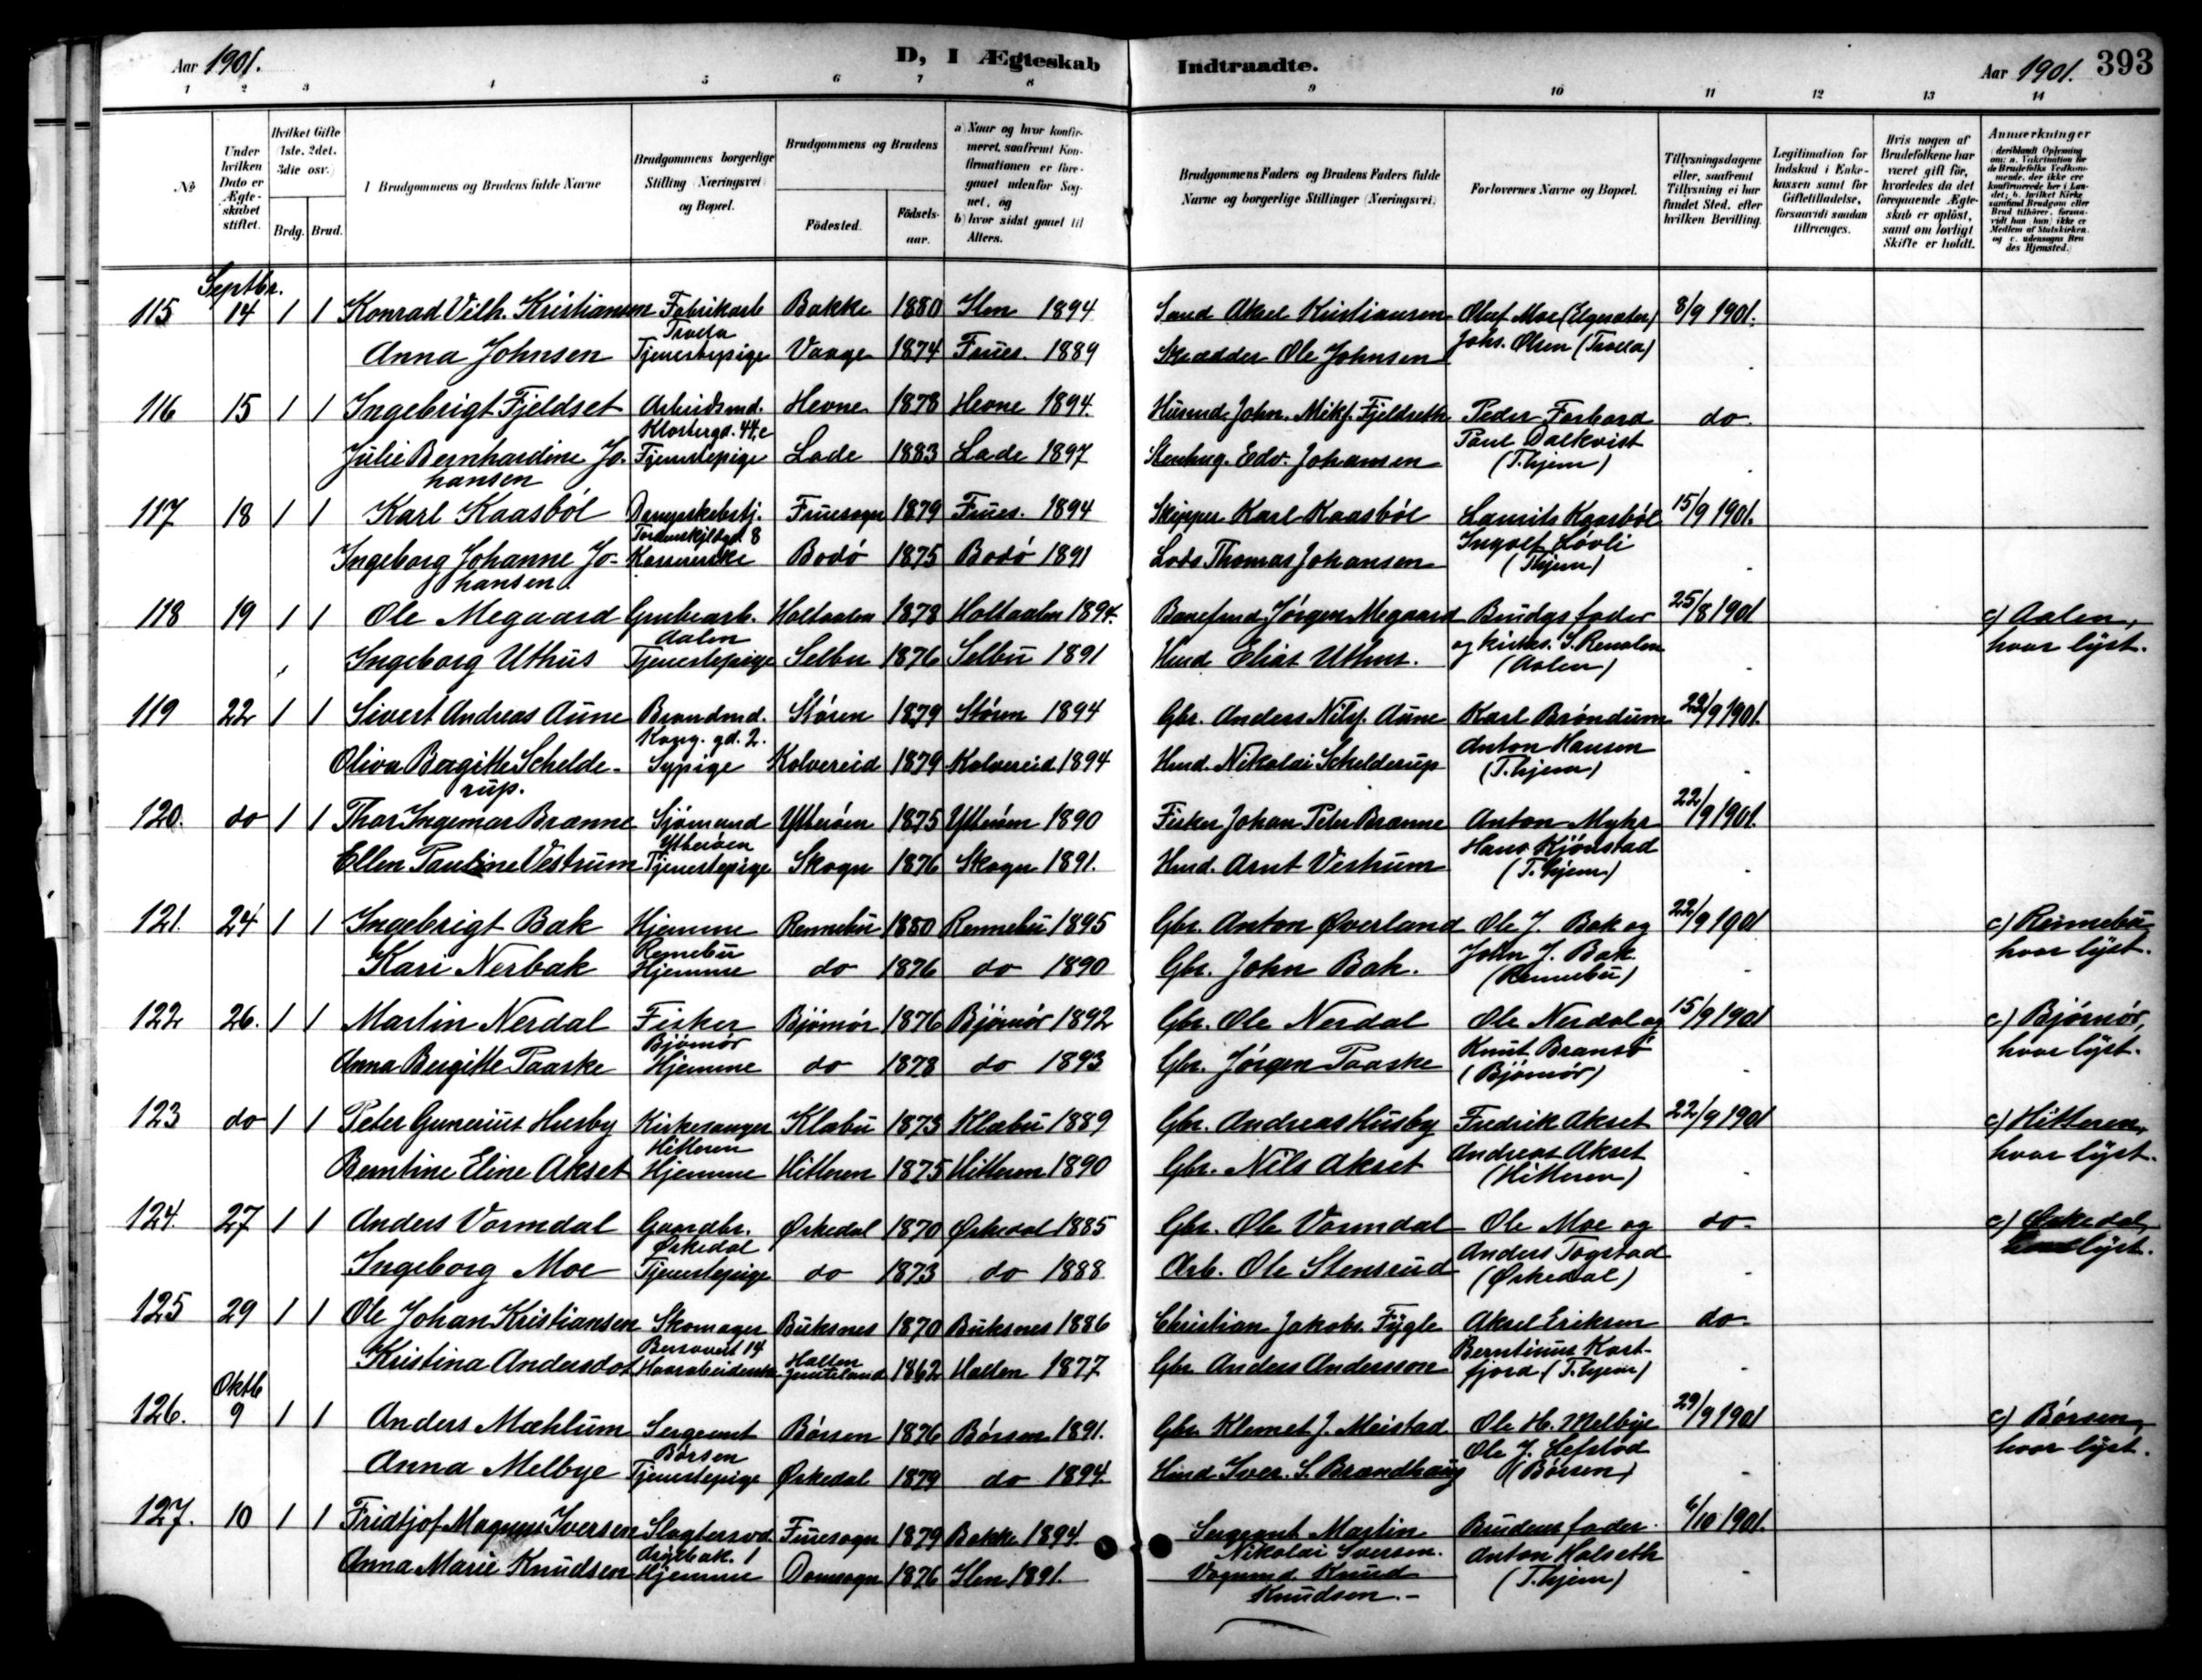 Aar 1901. D, I Ægteskab Indtraadte. Aar 1901. 393
1 2 3 4 5 6 7 8 9 10 11 12 13 14
№
Under hvilken Dato er Ægteskabet stiftet.
Hvilket Gifte (1ste, 2det, 3die osv.)
Brdg. Brud.
Brudgommens og Brudens fulde Navne
Brudgommens borgerlige Stilling (Næringsvei) og Bopæl.
Brudgommens og Brudens
Fødested. Fødselsaar.
a) Naar og hvor konfirmeret, saafremt Konfirmationen er foregaaet udenfor Sognet, og
b) hvor sidst gaaet til Alters.
Brudgommens Faders og Brudens Faders fulde Navne og borgerlige Stillinger (Næringsvei).
Forlovernes Navne og Bopæl.
Tillysningsdagene eller, saafremt Tillysning ei har fundet Sted, efter hvilken Bevilling.
Legitimation for Indskud i Enkekassen samt for Giftetilladelse, forsaavidt saadan tiltrænges.
Hvis nogen af Brudefolkene har været gift før, hvorledes da det foregaaende Ægteskab er opløst, samt om lovligt Skifte er holdt.
Anmærkninger (deriblandt Oplysning om: a. Vakcination for de Brudefolks Vedkommende, der ikke ere konfirmerede her i Landet; b. hvilket Kirkesamfund Brudgom eller Brud tilhører, forsaavidt han (hun) ikke er Medlem af Statskirken, og c. udensogns Brudes Hjemsted.)
Septbr.
115 14 1 1 Konrad Vilh. Kristiansen Fabrikarb Bakke 1880 Ilen 1894 Aksel Kristiansen Oluf Moe (Elgesæter) 8/9 1901.
Trolla
Anna Johnsen Tjenestepige Vaage 1874 Frues. 1889 Skrædder Ole Johnsen Johs. Olsen (Trolla)
116 15 1 1 Ingebrigt Fjeldset Arbeidsmd. Hevne 1878 Hevne 1894 Husmd. John Mikj. Fjeldseth Peder Forbord do.
Klostergd. 44c Paul Dalkvist
Julie Bernhardine Jo- Tjenestepige Lade 1883 Lade 1897 Stenhug. Edv. Johansen (T.hjem)
hansen
117 18 1 1 Karl Kaasböl Fruesogn 1879 Frues. 1894 Skipper Karl Kaasböl Laurits Kaasböl 15/9 1901.
Tordenskjoldsgd. 8 Ingolf Lövli
Ingeborg Johanne Jo- Bodö 1875 Bodö 1891 Lods Thomas Johansen (Thjem)
hansen.
118 19 1 1 Ole Megaard Grubearb. Holtaalen 1878 Holtaalen 1894. Jörgen Megaard Brudgs fader 25/8 1901 c) Aalen,
Aalen og kirkes. J. Renolen hvor lyst.
Ingeborg Uthus Tjenestepige Selbu 1876 Selbu 1891 Husmd Elias Uthus. (Aalen)
119 22 1 1 Sivert Andreas Aune Brandmd. Stören 1879 Stören 1894 Gbr. Anders Nilsj. Aune Karl Bröndum 22/9 1901.
Kong. gd. 2. Anton Hansen
Oliva Bergitte Schelde- Sypige Kolvereid 1879 Kolvereid 1894 Husmd. Nikolai Schelderup (T.hjem)
rup.
120. do 1 1 Thor Ingemar Brænne Sjömand Ytteröen 1875 Ytteröen 1890 Fisker Johan Peter Brænne Anton Myhr 22/9 1901.
Ytteröen Hans Kjönstad
Ellen Pauline Vestrum Tjenestepige Skogn 1876 Skogn 1891. Husmd. Arnt Vestrum (T.hjem)
121. 24 1 1 Ingebrigt Bak Hjemme Rennebu 1880 Rennebu 1895 Gbr. Anton Øverland Ole J. Bak og 22/9 1901 c) Rennebu
Rennebu John J. Bak hvor lyst.
Kari Nerbak Hjemme do 1876 do 1890 Gbr. John Bak. (Rennebu)
122 26. 1 1 Martin Nerdal Fisker Björnör 1876 Björnör 1892 Gbr. Ole Nerdal Ole Nerdal og 15/9 1901 c) Björnör,
Björnör Knut Bransö hvor lyst.
Anna Bergitte Paaske Hjemme do 1878 do 1893 Gbr. Jörgen Paaske (Björnör)
123 do 1 1 Peter Gunerius Husby Kirkesanger Klæbu 1873 Klæbu 1889 Gbr. Andreas Husby Fredrik Akset 22/9 1901 c) Hitteren,
Hitteren Andreas Akset hvor lyst.
Berntine Eline Akset Hjemme Hitteren 1875 Hitteren 1890 Gbr. Nils Akset (Hitteren)
124. 27 1 1 Anders Vormdal Gaardbr. Ørkedal 1870 Ørkedal 1885 Gbr. Ole Vormdal Ole Moe og do. c) Ørkedal,
Ørkedal Anders Togstad lyst.
Ingeborg Moe Tjenestepige do 1873 do 1888 Arb. Ole Stensrud (Ørkedal)
125 29 1 1 Ole Johan Kristiansen Skomager Buksnes 1870 Buksnes 1886 Christian Jakobs. Fygle Aksel Eriksen do.
Bersvert 14 Berntinus Kast-
Kristina Andersdot Haararbeiderske Hallen Jemteland 1862 Hallen 1877 Gbr Anders Andersson fjord (T.hjem)
Oktb
126. 9 1 1 Anders Mæhlum Sergeant Börsen 1876 Börsen 1891. Gbr Klemet J. Meistad Ole H. Melbye 29/9 1901 c) Börsen,
Börsen Ole J. Lefstad hvor lyst.
Anna Melbye Tjenestepige Ørkedal 1879 do 1894 Husmd Iver S. Brandhaug (Börsen)
127. 10 1 1 Fridtjof Magnus Iversen Slagtersvd. Fruesogn 1879 Bakke 1894. Sergeant Martin Brudens fader 6/10 1901.
Nikolai Iversen. Anton Halseth
Anna Marie Knudsen Hjemme Domsogn 1876 Ilen 1891. Vognmd. Knud (T.hjem)
Knudsen.